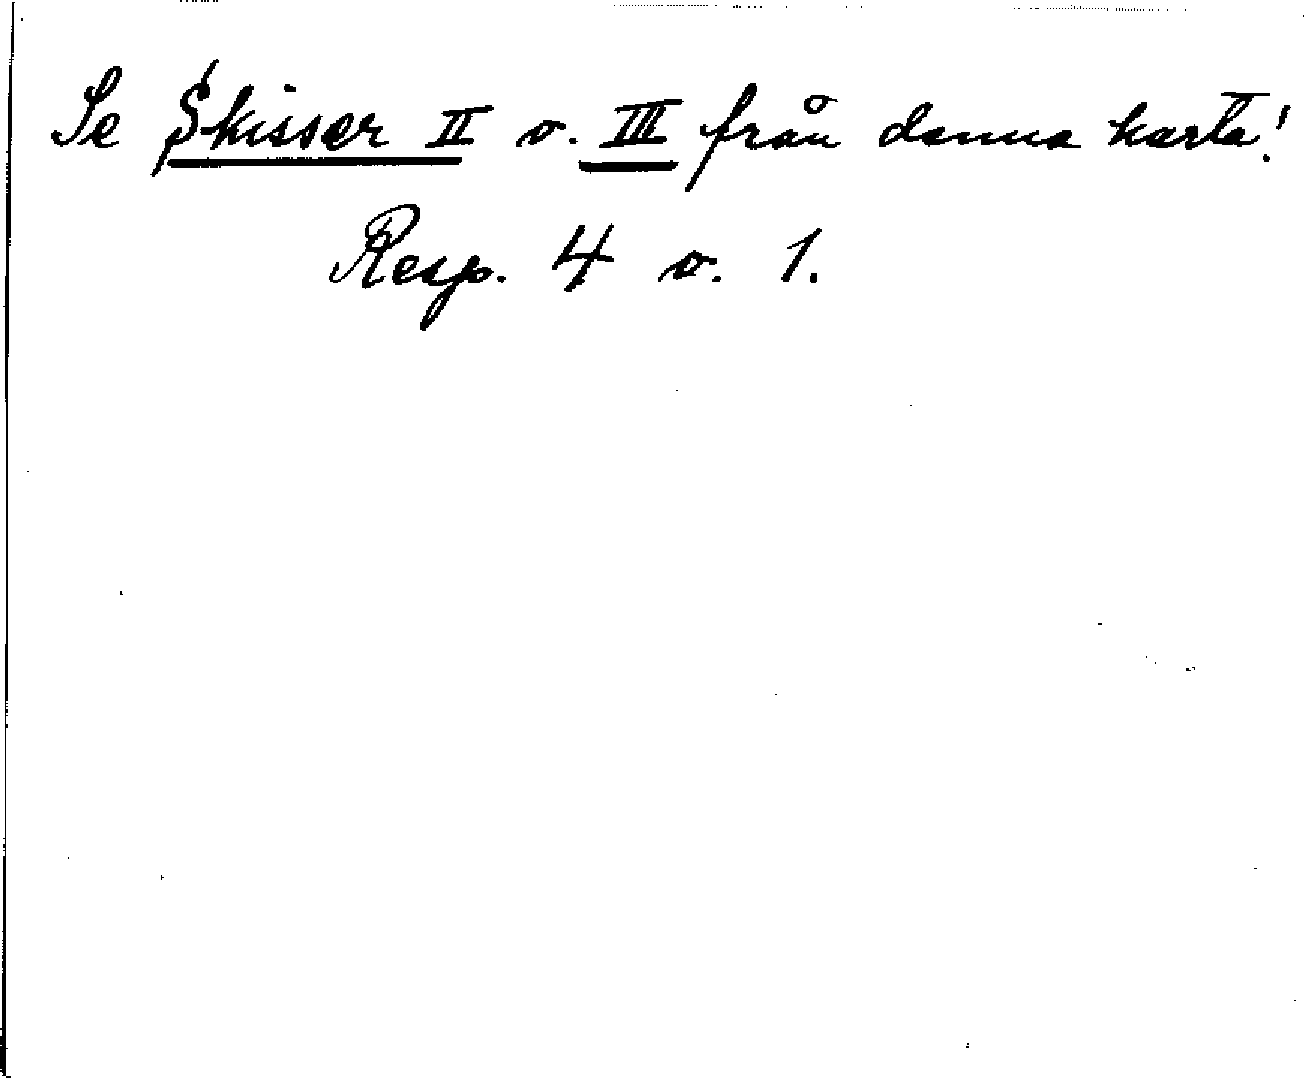 Se Skisser II o. III från denna karta!
Resp. 4 o. 1.